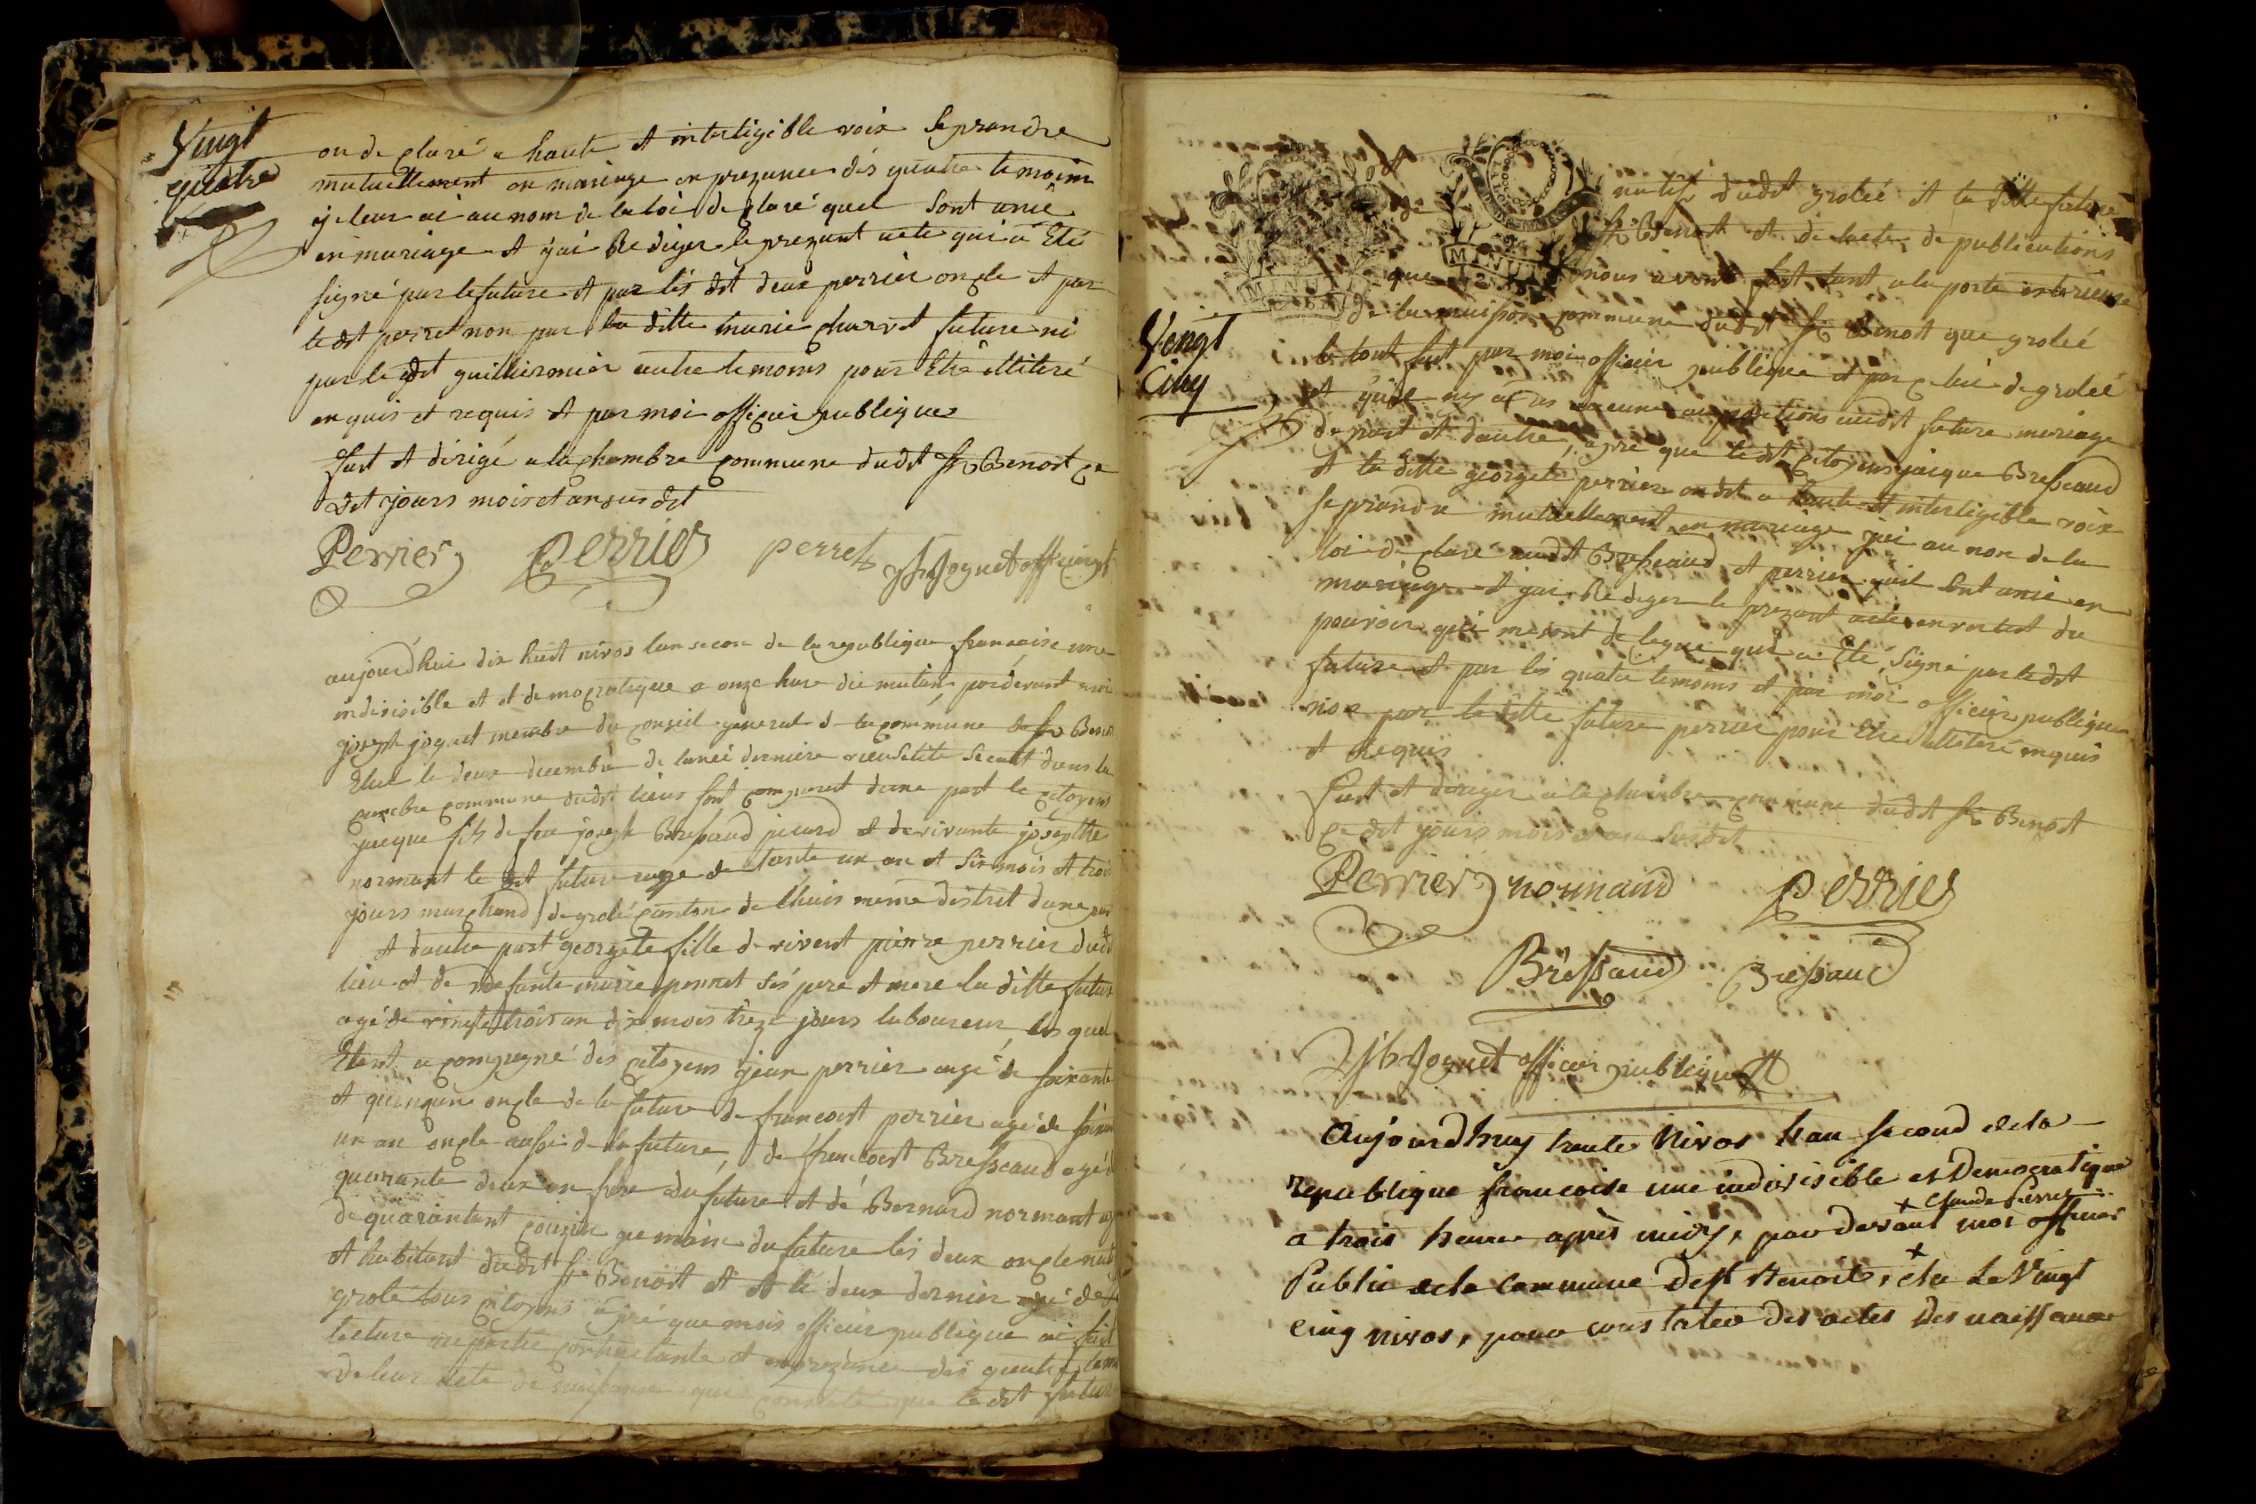 Vingt
quatre
on de claré a haute et interligible voix se prandre
mutuellement en mariage en prezance dés quatre temoim
je leur ai au nom de la loi de claré quel sont unie
en mariage et j'ai Rediger le prezant acte qui a Eté
signé par le future et par lés dit deux perrier oncle et par
le dit perret non par la ditte marie charvet future ni
par le dit guilliermier autre temoins pour Etre illiteré
enquis et requis et par moi officier publique
fait et dirigé a la chambre commune dudit St Benoit ce
dit jours mois et an susdit
Perrier Perrier perret Jh Joguet officier
aujourd'hui dix huit nivos lan secon de la republique francaise une
indivisible et et democratique a onze hure du matin pardevant moi
joseph joguet membre du conseil general de la commune de St Benoit
Elue le deux decembre de lanée derniere
commune dudit lieux sont comparut dune part le citoyens
jacque fils de feu joseph Bressaud et de vivante josephte
normant le dit future agé de trante un an et six mois et trois
jours marchand de grolée canton de lhuis meme district dune part
et dautre part georgete fille de vivent pierre perrier dudit
lieu et de defante marie perret sés pere et mere la ditte future
agé de vingt trois an dix mois treze jours laboureur les quel
Etant acompagné dés citoyens jean perrier agé de soixante
et quinque oncle de la future de francoist perrier agé de
un an oncle aussi de la future, de francoist Bresseaud agé
quarante deux an frere du future et de Bernard normant agé
de quarantent cousin germain du future lés deux oncle
et habitant dudit St Benoit et et lé deux dernier de
grolé tous citoyens apré que mois officier publique ai fait
lecture au partie contractante et en prezance dés quatre temoins
de leur acte de naissance que constate que le dit future
et
natif dudit grolée et la ditte future
de St Benoit et de lacte de publications
que nous avons fait tant a la porte exterieure
de la maison commune dudit St Benoit que grolée
MINUTE
MINUTE
Vengt
Cinq
le tout fait par moi officier publique et par celui de grolée
et quil ny a us aucune oppozitions audit future mariage
de part et dautre, apré que le dit citoyens jacque Bresseaud
et la ditte georgete perrier on dit a haute et interligible voix
se prandre mutuellement en mariage j'ai au nom de la
loi de claré audit Bresseaud et perrier quil sont unie en
mariage et j'ai Rediger le prezant acte en vertut du
pouvoir qui me sont delegué qui a Eté signé par le dit
future et par lés quatre temoins et par moi officier publique
non par la ditte future perrier pour Etre illiteré enquis
et Requis
fait et diriger a la chambre commune dudit St Benoit
ce dit jours mois et an susdit
Perrier normand Perrier
Bressaud Bressaud
Jh Joguet officier publique
Aujourdhuy trente Nivos l'an second de la
republique francoise une indivisible et Democratique
+ Claude Perret
a trois heure après midy, par devant moi officier
Public de la commune de St Benoit, élu Le Vingt
cinq nivos, pour constater des actes Des naissance